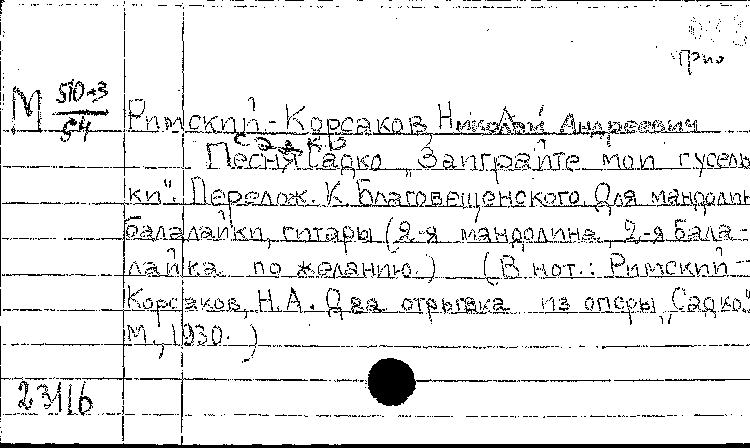 трио
М 510-3
54
Римский-Корсаков, Николай Андреевич
Песня Садко „Заиграйте мои гусель-
ки". Перелож. К. Благовещенского. Для мандолин
балалайки, гитары (2-я мандолина, 2-я бала-
лайка по желанию.) (В нот.: Римский-
Корсаков, Н.А. Два отрывка из оперы „Садко."
М., 1930.)
23116